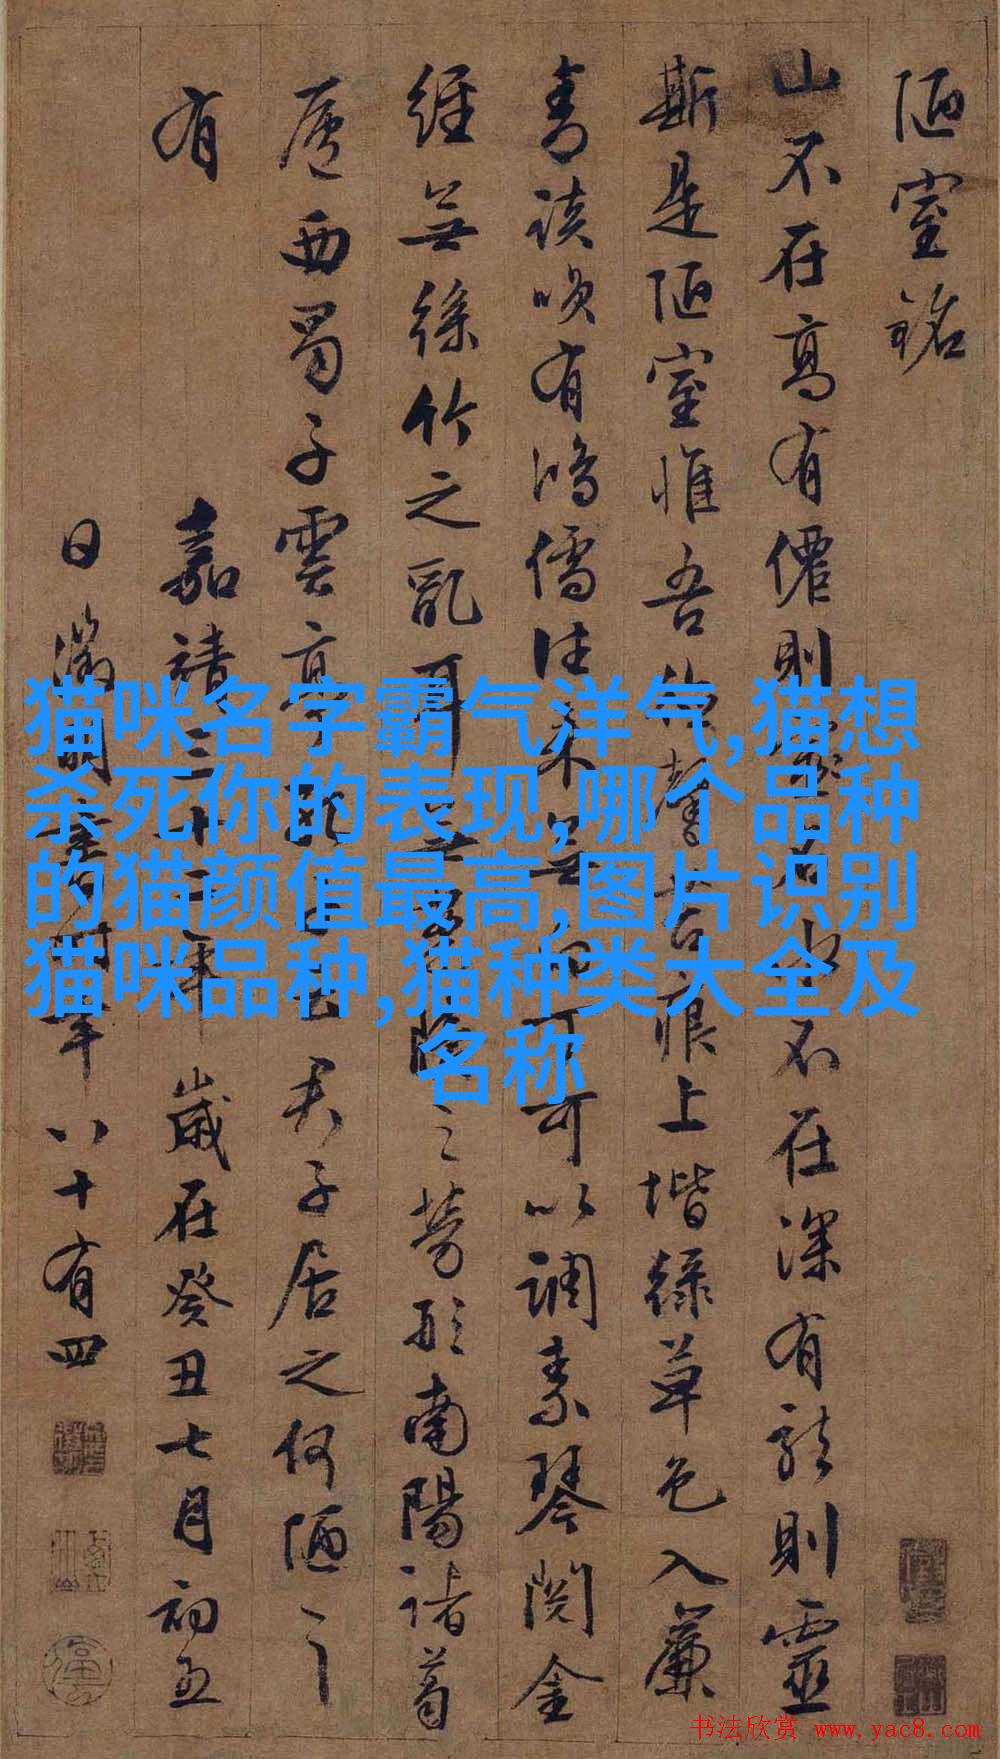 陋室銘
山不在高有僊則名水不在深有龍則靈
斯是陋室惟吾德馨苔痕上堦綠草色入簾
青談笑有鴻儒往來無白丁可以調素琴閱金
經無絲竹之亂耳無案牘之勞形南陽諸葛
廬西蜀子雲亭孔子云君子居之何陋之
有
嘉靖三十二年歲在癸丑七月初五
日徵明書時年八十有四
猫咪名字霸气洋气,猫想
杀死你的表现,哪个品种
的猫颜值最高,图片识别
猫咪品种,猫种类大全及
名称
书法欣赏 www.yac8.com